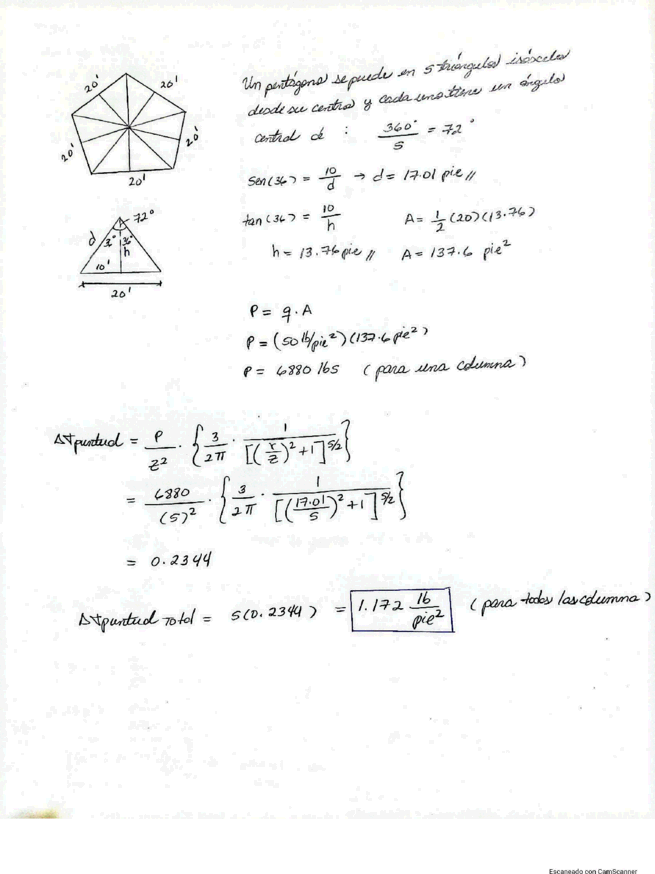 20' 20'
Un pentágono se puede en 5 triángulos isósceles
desde su centro y cada uno tiene un ángulo
central de : 360°/5 = 72°
20' 20'
20'
Sen(36) = 10/d → d = 17.01 pie //
72°
tan(36) = 10/h A = 1/2 (20)(13.76)
d 36° 36° h
10'
h = 13.76 pie // A = 137.6 pie²
20'
P = q . A
P = (50 lb/pie²)(137.6 pie²)
P = 6880 lbs (para una columna)
Δσpuntual = P/z² . {3/2π . 1/[(r/z)² + 1]^5/2}
= 6880/(5)² . {3/2π . 1/[(17.01/5)² + 1]^5/2}
= 0.2344
Δσpuntual Total = 5(0.2344) = 1.172 lb/pie² (para todas las columna)
Escaneado con CamScanner